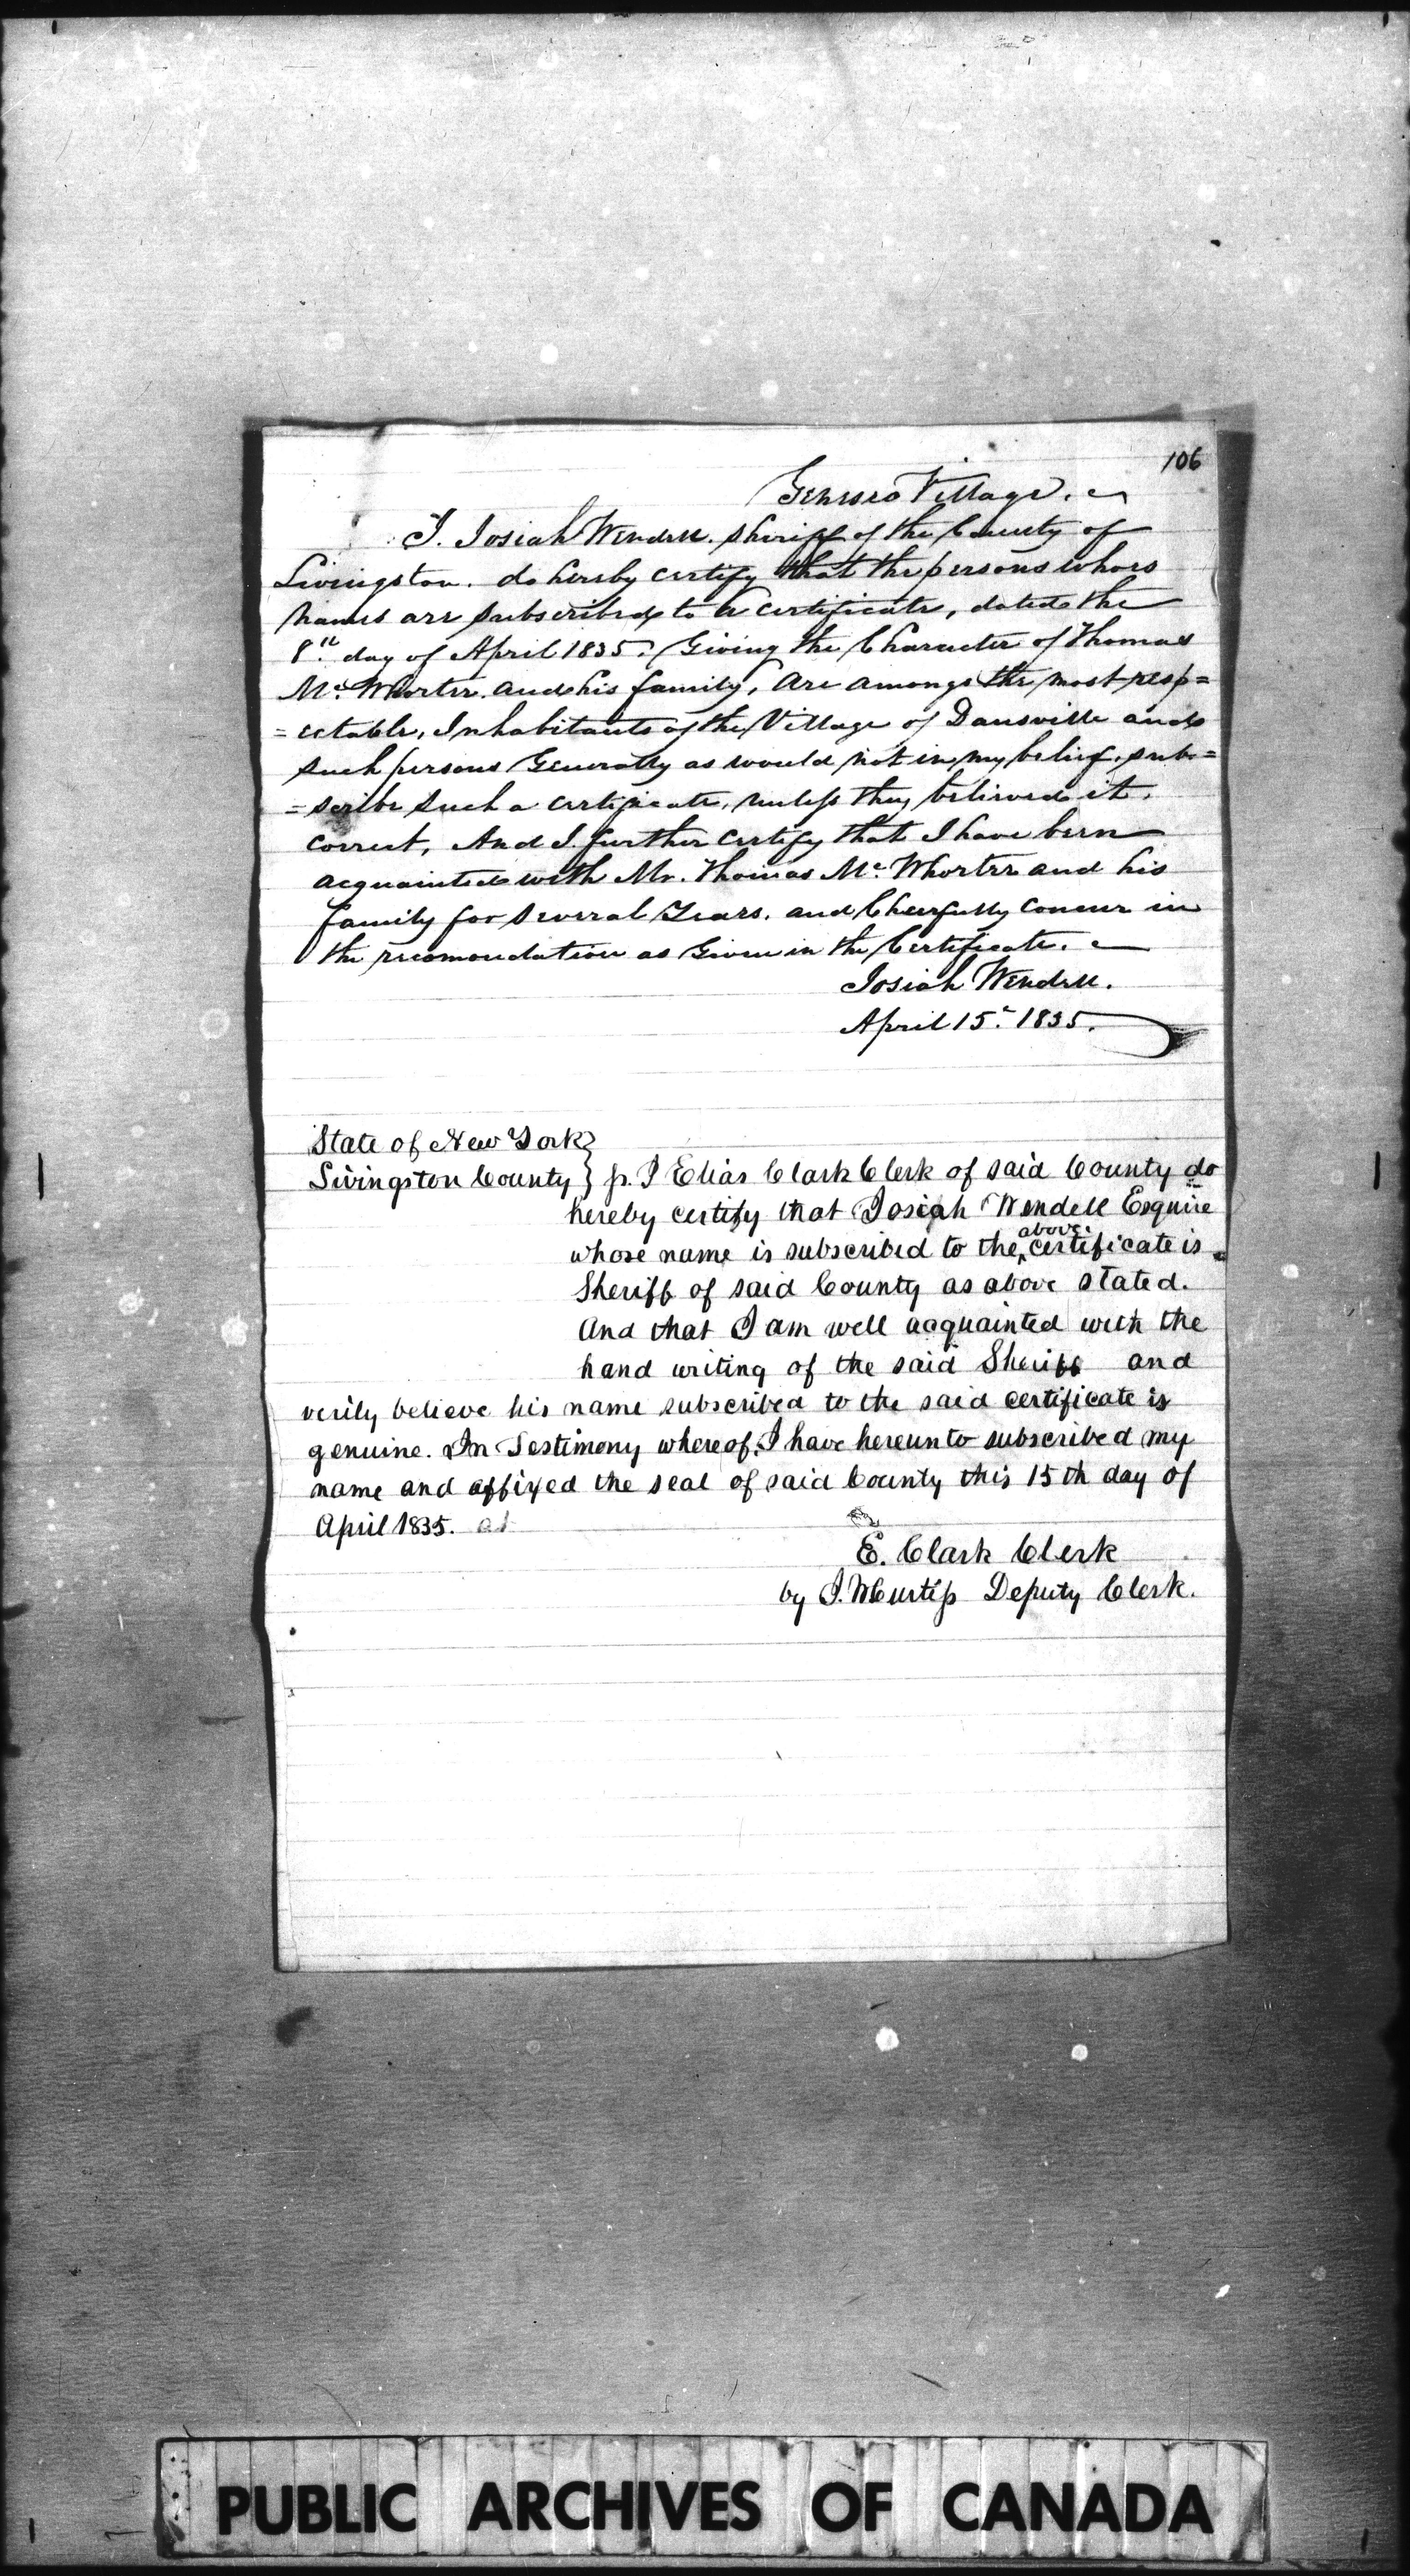 106
Geneseo Village.
I. Josiah Wendell. Sheriff of the County of
Livingston. do hereby certify that the persons whoes
names are subscribed to a certificate, dated the
8th day of April 1835. Giving the Character of Thomas
Mc. Whorter. and his family, are amongs the most resp=
=ectable, Inhabitants of the Village of Dansville and
such persons Generally as would not in my belief. sub=
=scribe such a certificate, unless they believed it.
correct, And I further certify that I have been
acquainted with Mr. Thomas Mc. Whorter and his
family for several Years. and Cheerfully concur in
the recomondation as Given in the Certificate.
Josiah Wendell.
April 15. 1835.
State of New York }
Livingston County } ss. I Elias Clark Clerk of said County do
hereby certify that Josiah Wendell Esquire
whose name is subscribed to the above certificate is
Sheriff of said County as above stated.
And that I am well acquainted with the
hand writing of the said Sheriff and
verily believe his name subscribed to the said certificate is
genuine. In Testimony whereof, I have hereunto subscribed my
name and affixed the seal of said County this 15th day of
April 1835.
E. Clark Clerk
by I. W Curtiss Deputy Clerk.
PUBLIC ARCHIVES OF CANADA